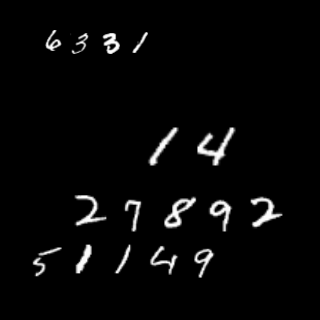 6331
14
27892
51149